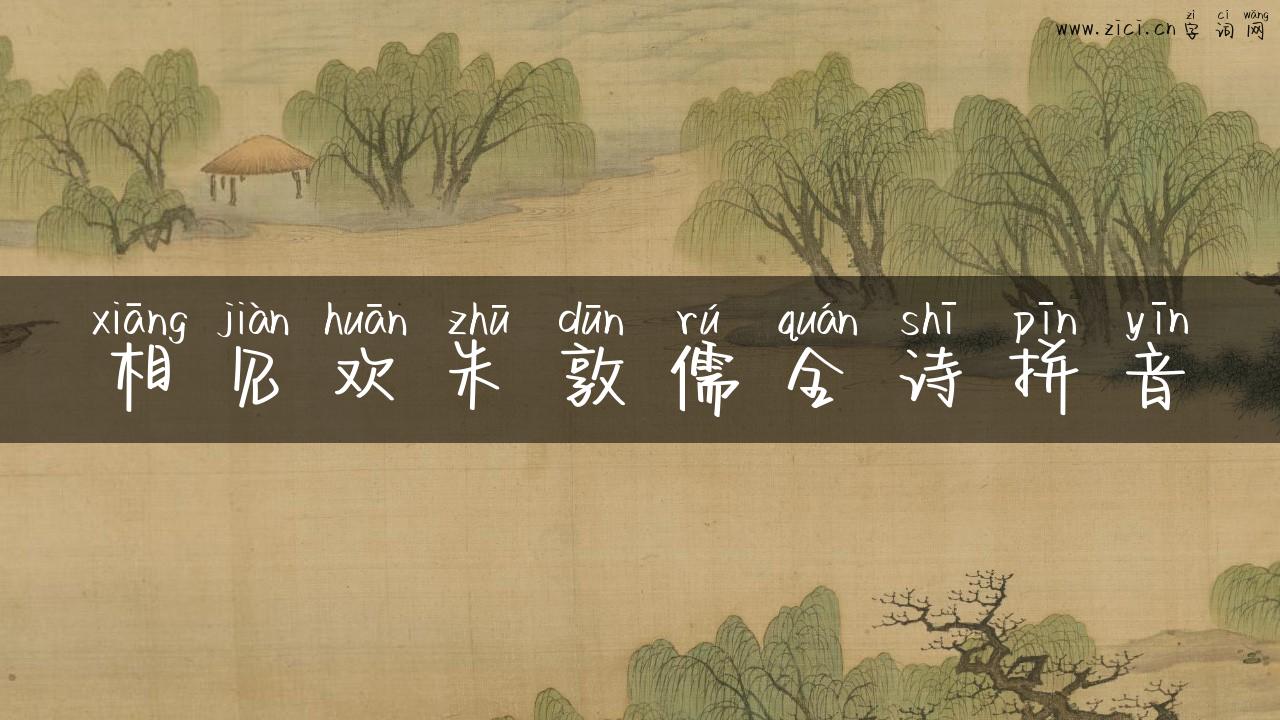 zì cí wǎng
www.zici.cn 字词网
xiāng jiàn huān zhū dūn rú quán shī pīn yīn
相见欢朱敦儒全诗拼音